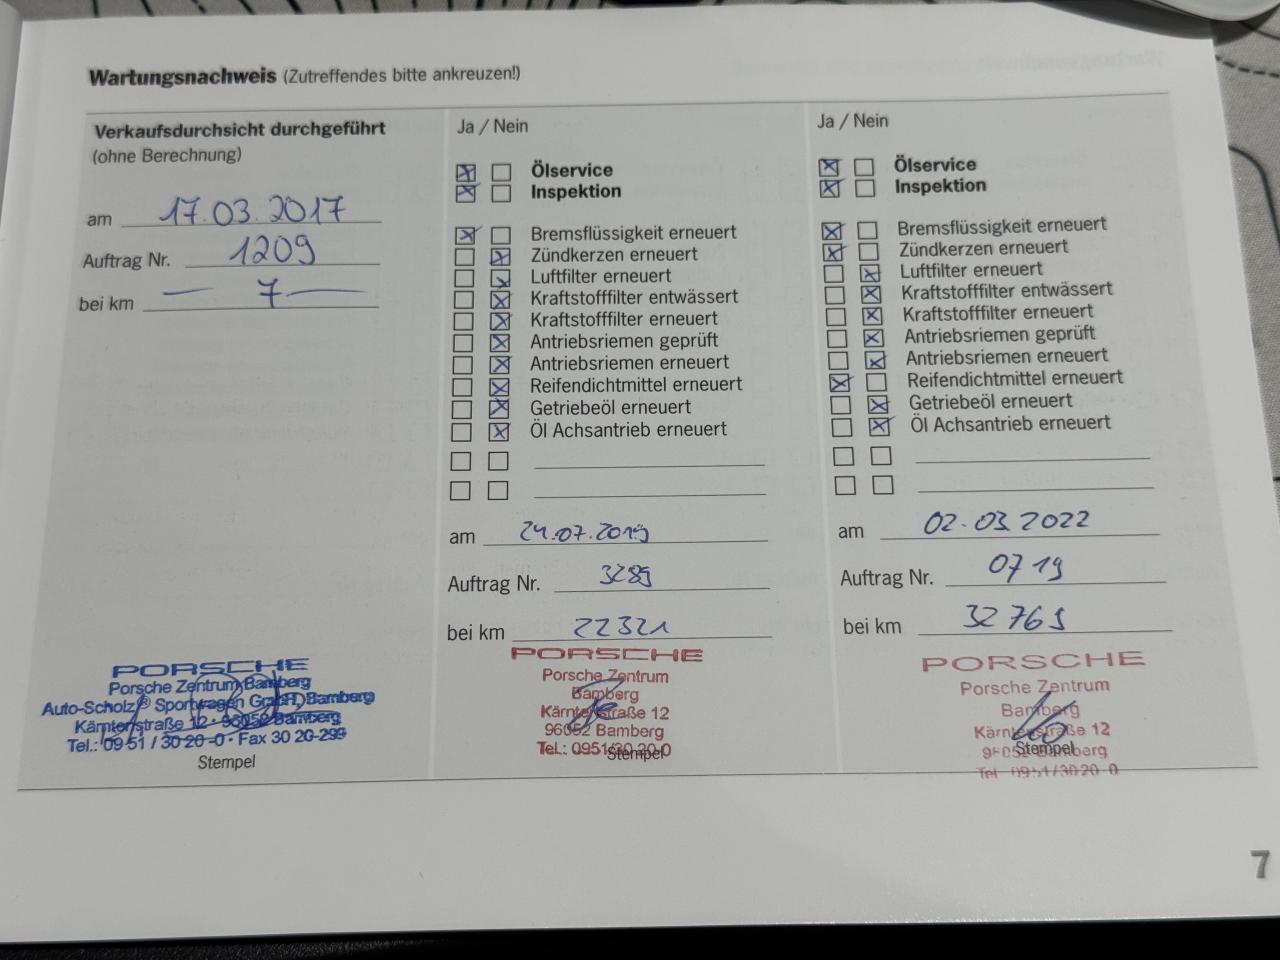 Wartungsnachweis (Zutreffendes bitte ankreuzen!)
Verkaufsdurchsicht durchgeführt
(ohne Berechnung)
am 17.03.2017
Auftrag Nr. 1209
bei km — 7 —
PORSCHE
Porsche Zentrum Bamberg
Auto-Scholz® Sportwagen GmbH, Bamberg
Kärntenstraße 12 · 96052 Bamberg
Tel.: 09 51 / 30 20 -0 · Fax 30 20-299
Stempel
Ja / Nein
Ölservice
Inspektion
Bremsflüssigkeit erneuert
Zündkerzen erneuert
Luftfilter erneuert
Kraftstofffilter entwässert
Kraftstofffilter erneuert
Antriebsriemen geprüft
Antriebsriemen erneuert
Reifendichtmittel erneuert
Getriebeöl erneuert
Öl Achsantrieb erneuert
am 24.07.2019
Auftrag Nr. 3289
bei km 22321
PORSCHE
Porsche Zentrum
Bamberg
Kärntenstraße 12
96052 Bamberg
Tel.: 0951/30 20-0
Stempel
Ja / Nein
Ölservice
Inspektion
Bremsflüssigkeit erneuert
Zündkerzen erneuert
Luftfilter erneuert
Kraftstofffilter entwässert
Kraftstofffilter erneuert
Antriebsriemen geprüft
Antriebsriemen erneuert
Reifendichtmittel erneuert
Getriebeöl erneuert
Öl Achsantrieb erneuert
am 02.03.2022
Auftrag Nr. 0719
bei km 32765
PORSCHE
Porsche Zentrum
Bamberg
Kärntenstraße 12
96052 Bamberg
Stempel
Tel 0951/3020-0
7